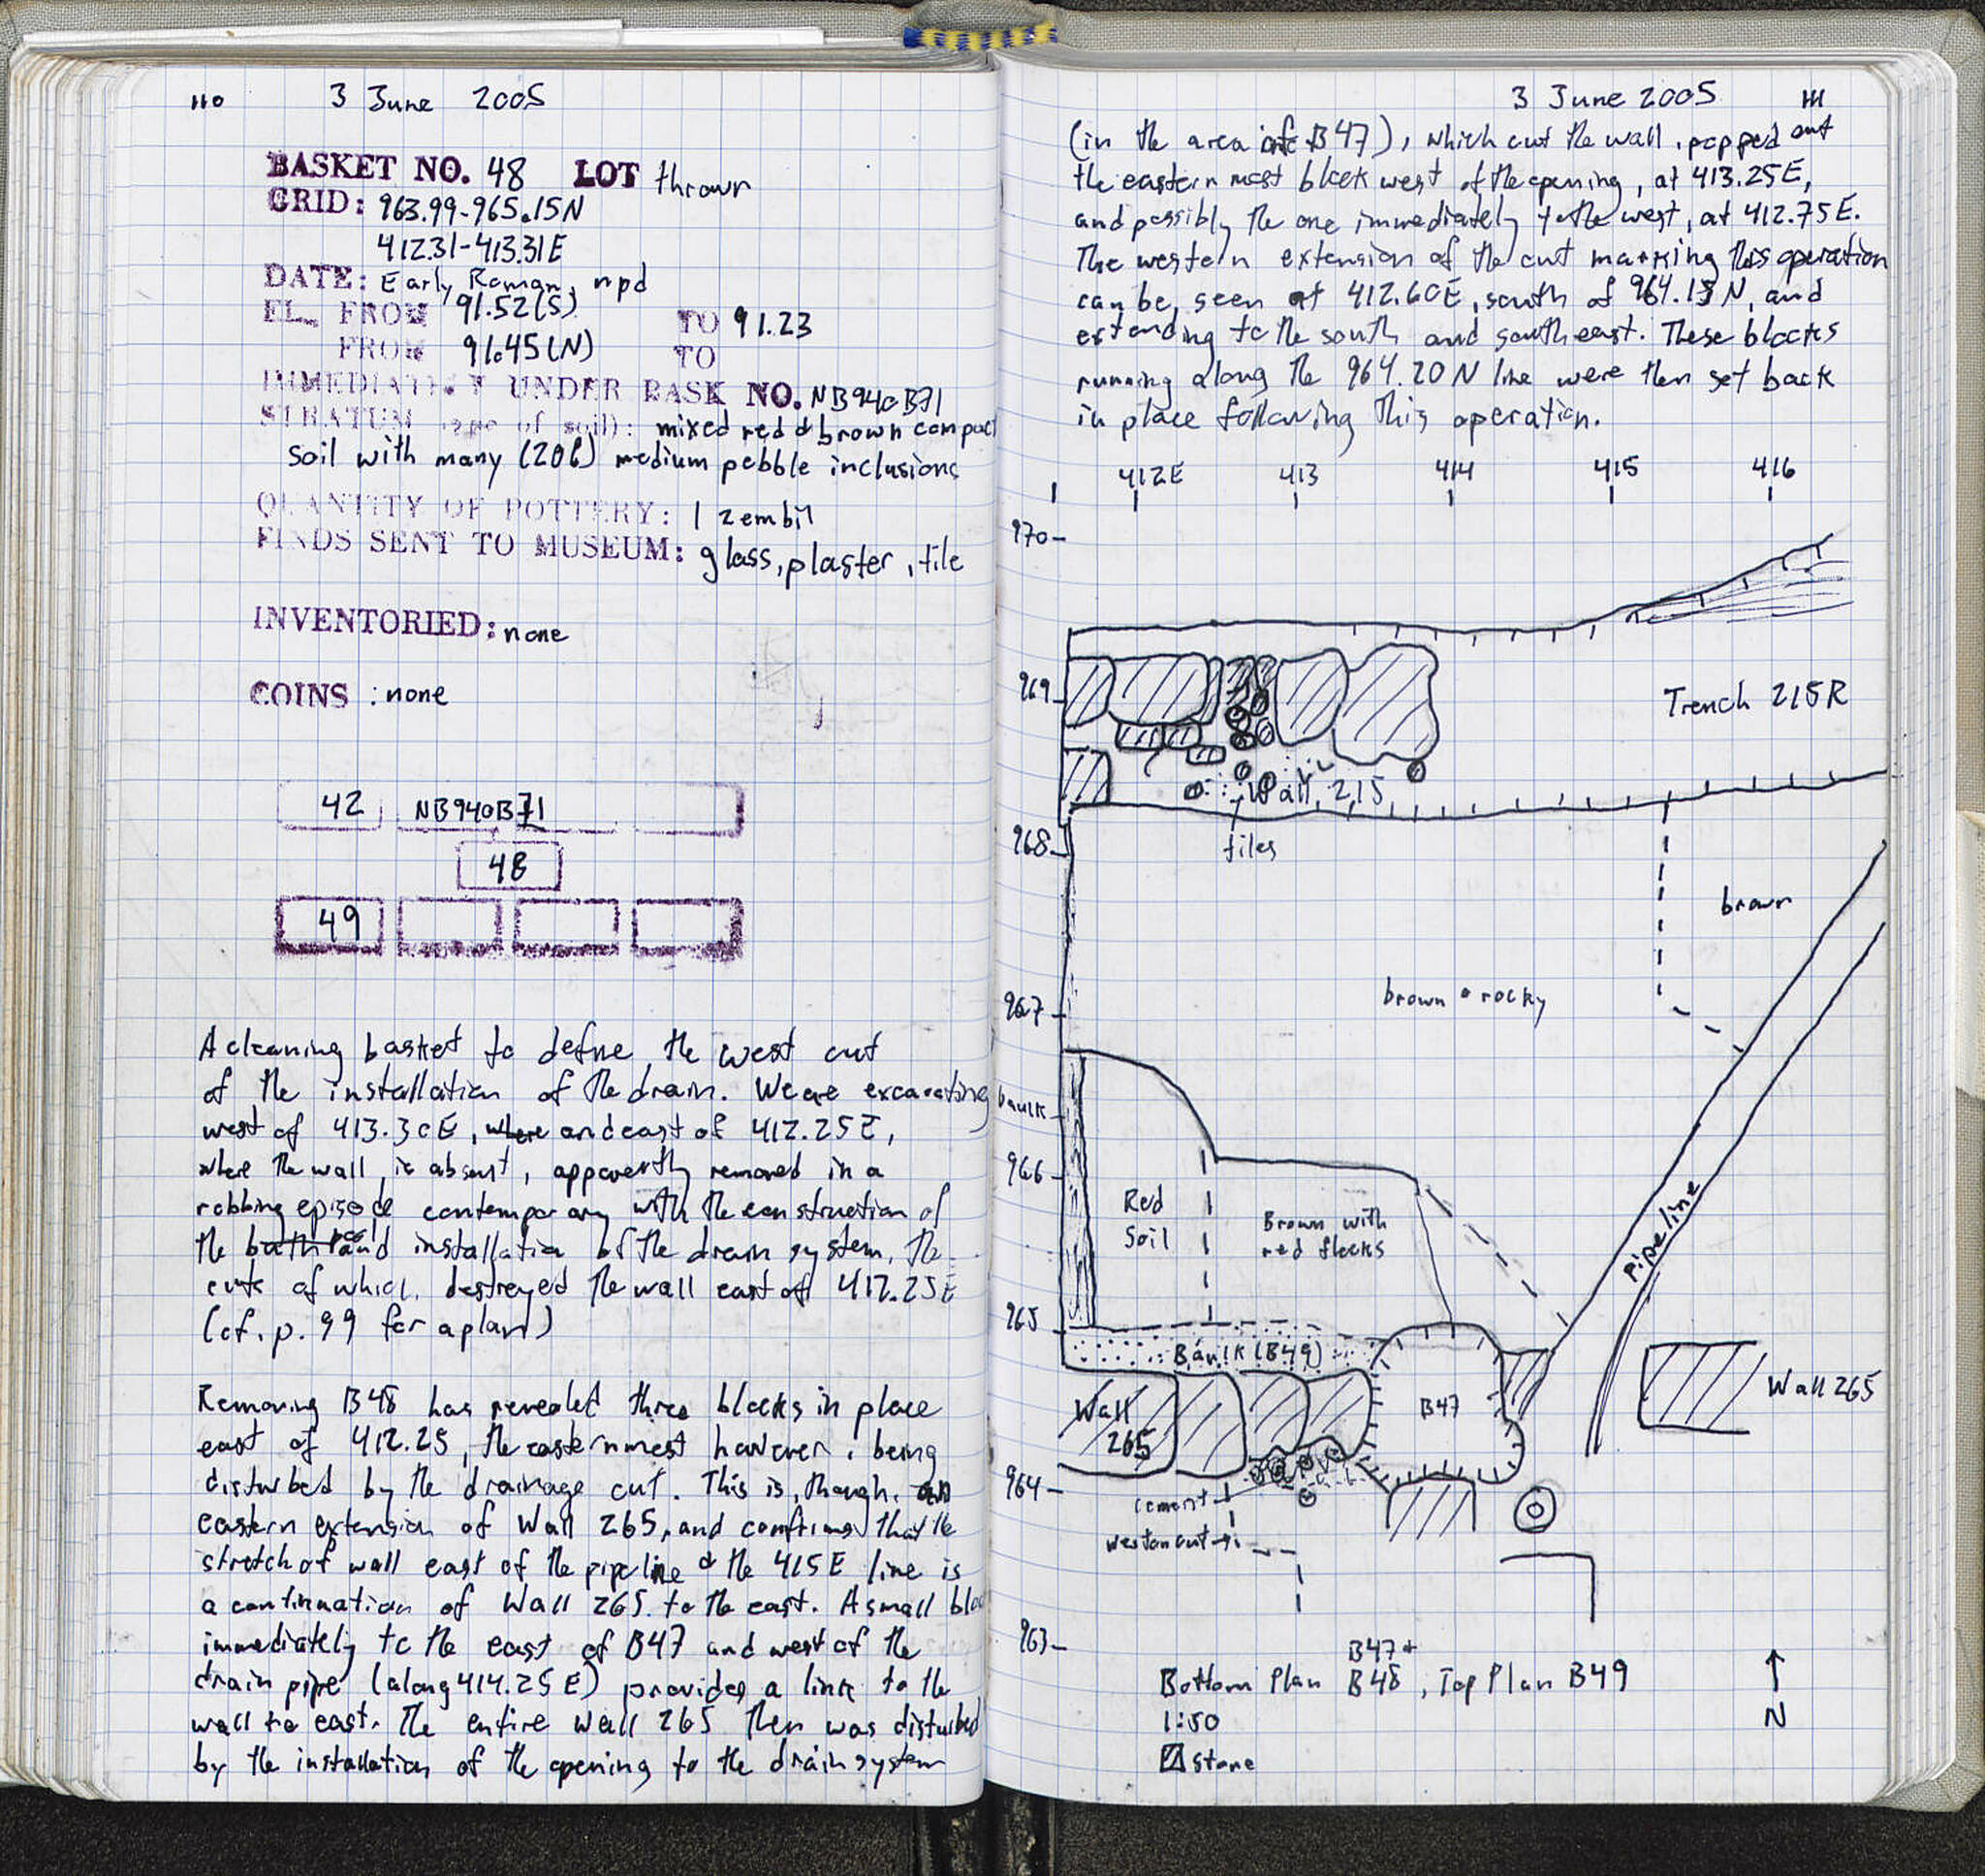 110 3 June 2005
BASKET NO. 48 LOT thrown
GRID: 963.99-965.15N
412.31-413.31E
DATE: Early Roman, npd
EL. FROM 91.52(S) TO 91.23
FROM 91.45(N) TO
IMMEDIATELY UNDER BASK NO. NB940B71
STRATUM (type of soil): mixed red & brown compact
soil with many (20%) medium pebble inclusions
QUANTITY OF POTTERY: 1 zembil
FINDS SENT TO MUSEUM: glass, plaster, tile
INVENTORIED: none
COINS : none
42 NB940B71
48
49
A cleaning basket to define the west cut
of the installation of the drain. We are excavating
west of 413.30E, where and east of 412.25E,
where the wall is absent, apparently removed in a
robbing episode contemporary with the construction of
the installation of the drain system, the
cuts of which destroyed the wall east of 412.25E
(cf. p. 99 for a plan)
Removing B48 has revealed three blocks in place
east of 412.25, the easternmost however, being
disturbed by the drainage cut. This is, though, an
eastern extension of Wall 265, and confirms that the
stretch of wall east of the pipeline & the 415E line is
a continuation of Wall 265 to the east. A small bloc
immediately to the east of B47 and west of the
drain pipe (along 414.25E) provides a link to the
wall to east. The entire Wall 265 then was disturbed
by the installation of the opening to the drain system
3 June 2005 111
(in the area of B47), which cut the wall, popped out
the eastern most block west of the opening, at 413.25E,
and possibly the one immediately to the west, at 412.75E.
The western extension of the cut marking this operation
can be seen at 412.60E, south of 964.13N, and
extending to the south and southeast. These blocks
running along the 964.20N line were then set back
in place following this operation.
412E 413 414 415 416
970
969
Trench 215R
Wall 215
968
tiles
brown
brown & rocky
967
baulk
966
Red
Soil
Brown with
red flecks
pipeline
965
Baulk (B49)
Wall 265
B47
Wall
265
964
cement
western cut
963
B47+
Bottom Plan B48, Top Plan B49
1:50
stone
N